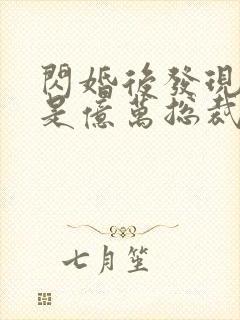 閃婚後發現
是億萬總裁
七月笙